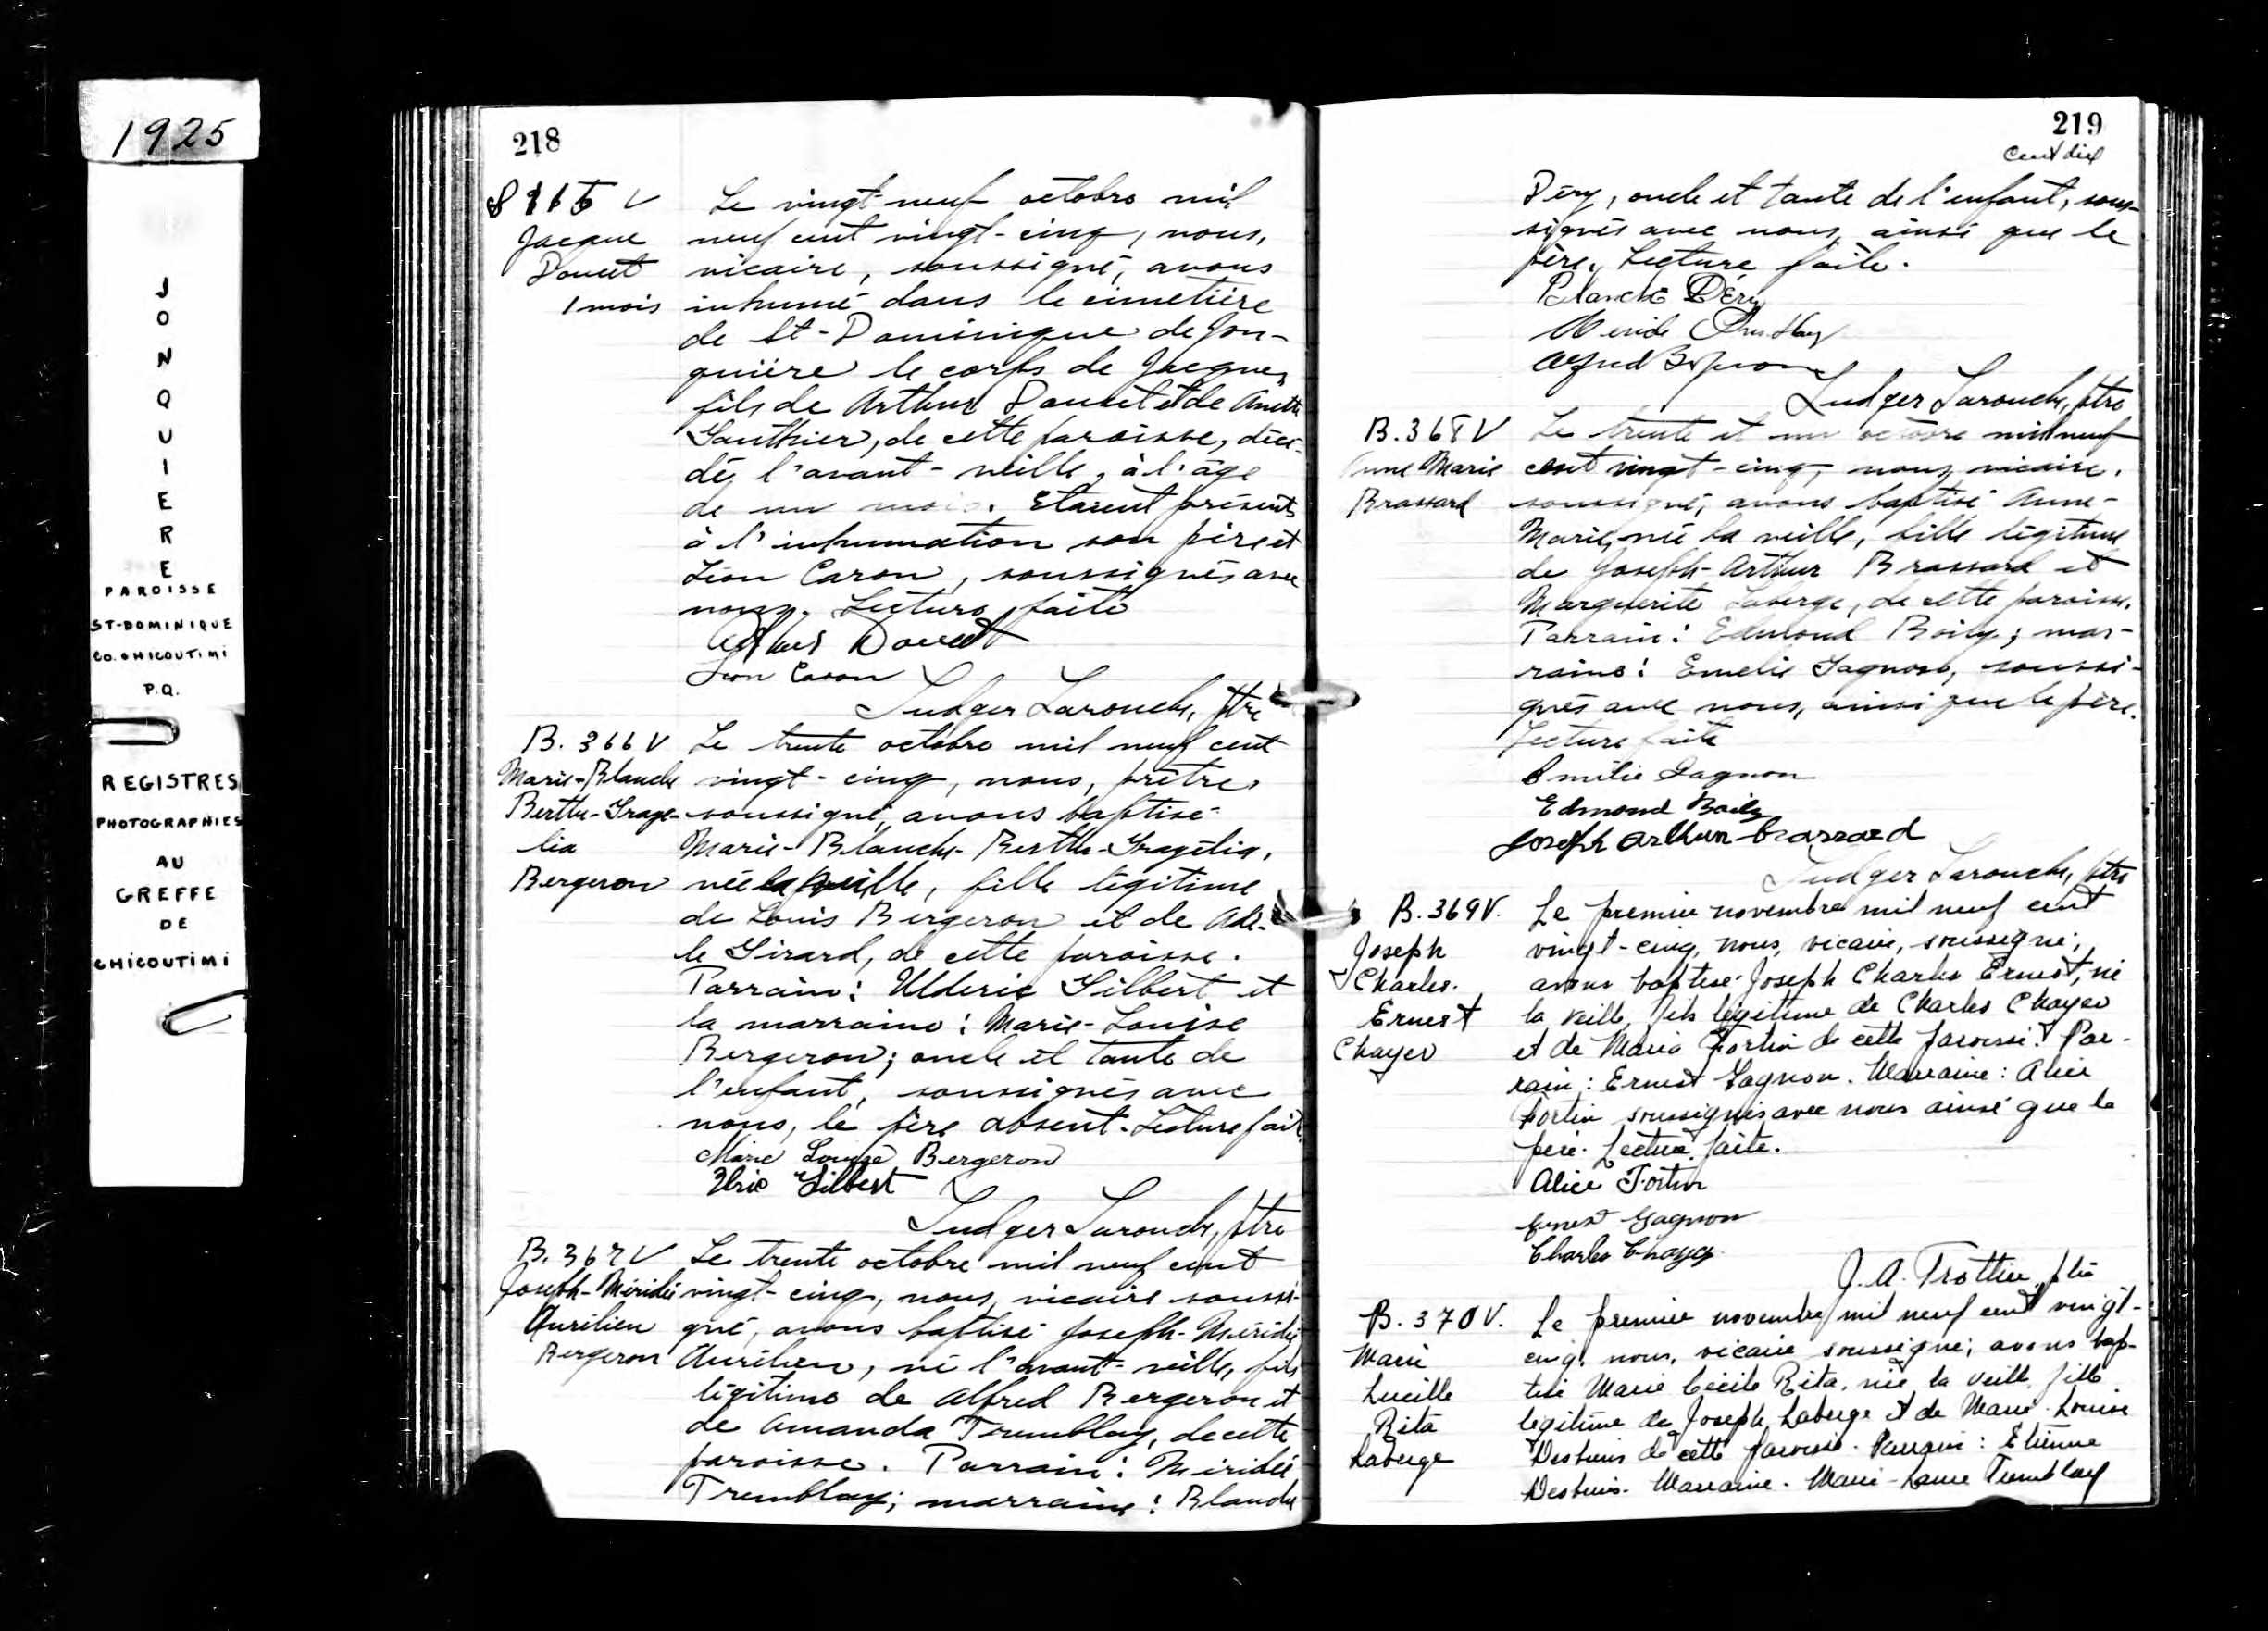 1925
JONQUIERE
PAROISSE
ST-DOMINIQUE
CO. CHICOUTIMI
P.Q.
REGISTRES
PHOTOGRAPHIES
AU
GREFFE
DE
CHICOUTIMI
218
Jacques
Doucet
1 mois
Le vingt-neuf octobre mil
neuf cent vingt-cinq, nous,
vicaire, soussigné, avons
inhumé dans le cimetière
de St-Dominique de Jon-
quière le corps de Jacques,
fils de Arthur Doucet et de Anette
Gauthier, de cette paroisse, décé-
dé l'avant-veille, à l'âge
de un mois. Etaient présents
à l'inhumation son père et
Léon Caron, soussignés avec
nous. Lecture faite
Arthur Doucet
Léon Caron
Ludger Larouche, ptre
B. 366 V
Marie-Blanche
Berthe-Grazé-
lia
Bergeron
Le trente octobre mil neuf cent
vingt-cinq, nous, prêtre,
soussigné, avons baptisé
Marie-Blanche-Berthe-Grazélia,
née la veille, fille légitime
de Louis Bergeron et de Adè-
le Girard, de cette paroisse.
Parrain: Ulderic Gilbert et
la marraine: Marie-Louise
Bergeron; oncle et tante de
l'enfant, soussignés avec
nous, le père absent. Lecture faite
Marie Louise Bergeron
Gilbert
Ludger Larouche, ptre
B. 367 V
Joseph-Méridé
Aurélien
Bergeron
Le trente octobre mil neuf cent
vingt-cinq, nous, vicaire soussi-
gné, avons baptisé Joseph-Méridé
Aurélien, né l'avant-veille, fils
légitime de Alfred Bergeron et
de Amanda Tremblay, de cette
paroisse. Parrain: Méridé
Tremblay; marraine: Blanche
219
Cent dix
Déry, oncle et tante de l'enfant, sous-
signés avec nous, ainsi que le
père. Lecture faite.
Blanche Déry
Alfred Bergeron
Ludger Larouche, ptre
B. 368 V
Anne Marie
Brassard
Le trente et un octobre mil neuf
cent vingt-cinq, nous, vicaire,
soussigné, avons baptisé Anne-
Marie, née la veille, fille légitime
de Joseph-Arthur Brassard et
Marguerite Laberge, de cette paroisse.
Parrain: Edmond Boily; mar-
raine: Emelie Gagnon, soussi-
gnés avec nous, ainsi que le père.
Lecture faite
Emilie Gagnon
Edmond Boily
Joseph Arthur Brassard
Ludger Larouche, ptre
B. 369 V.
Joseph
Charles.
Ernest
Chayer
Le premier novembre mil neuf cent
vingt-cinq, nous, vicaire, soussigné,
avons baptisé Joseph Charles Ernest, né
la veille, fils légitime de Charles Chayer
et de Maria Fortin de cette paroisse. Par-
rain: Ernest Gagnon. Marraine: Alice
Fortin soussignés avec nous ainsi que le
père. Lecture faite.
Alice Fortin
Ernest Gagnon
Charles Chayer
J. A. Trottier, ptre
B. 370 V.
Marie
Lucille
Rita
Laberge
Le premier novembre mil neuf cent vingt-
cinq, nous, vicaire soussigné, avons bap-
tisé Marie Cécile Rita, née la veille, fille
légitime de Joseph Laberge et de Marie-Louise
Desbiens de cette paroisse. Parrain: Etienne
Desbiens. Marraine. Marie-Laure Tremblay